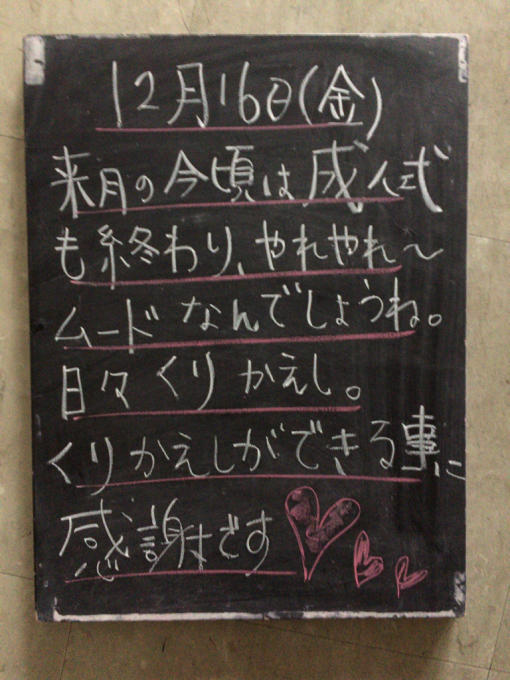 12月16日(金)
来月の今頃は成人式
も終わり、やれやれ～
ムードなんでしょうね。
日々くりかえし。
くりかえしができる事に
感謝です